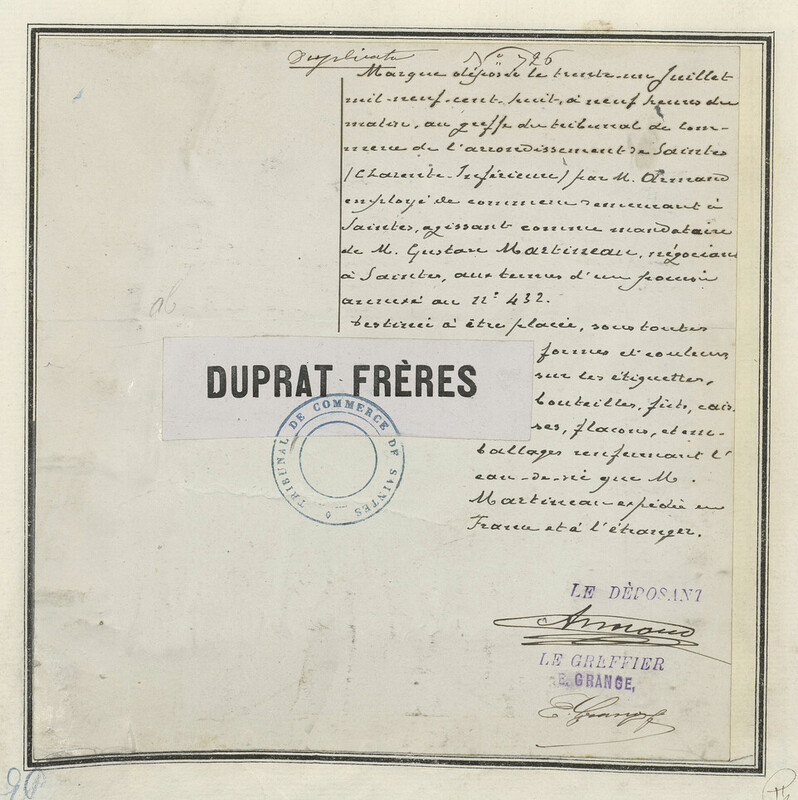 Duplicata
N° 726
Marque déposée le trente-un Juillet
mil-neuf-cent-huit, à neuf heures du
matin, au greffe du tribunal de Com-
merce de l'arrondissement de Saintes
(Charente-Inférieure) par M. Armand
employé de commerce demeurant à
Saintes, agissant comme mandataire
de M. Gustave Martineau, négociant
à Saintes, aux termes d'un pouvoir
annexé au n° 432.
Destinée à être placée, sous toutes
formes et couleurs
sur les étiquettes,
bouteilles, fûts, cais-
ses, flacons, et em-
ballages renfermant l'
eau-de-vie que M.
Martineau expédie en
France et à l'étranger.
DUPRAT FRÈRES
TRIBUNAL DE COMMERCE DE SAINTES
LE DÉPOSANT
Armand
LE GREFFIER
E. GRANGE,
E. Grange